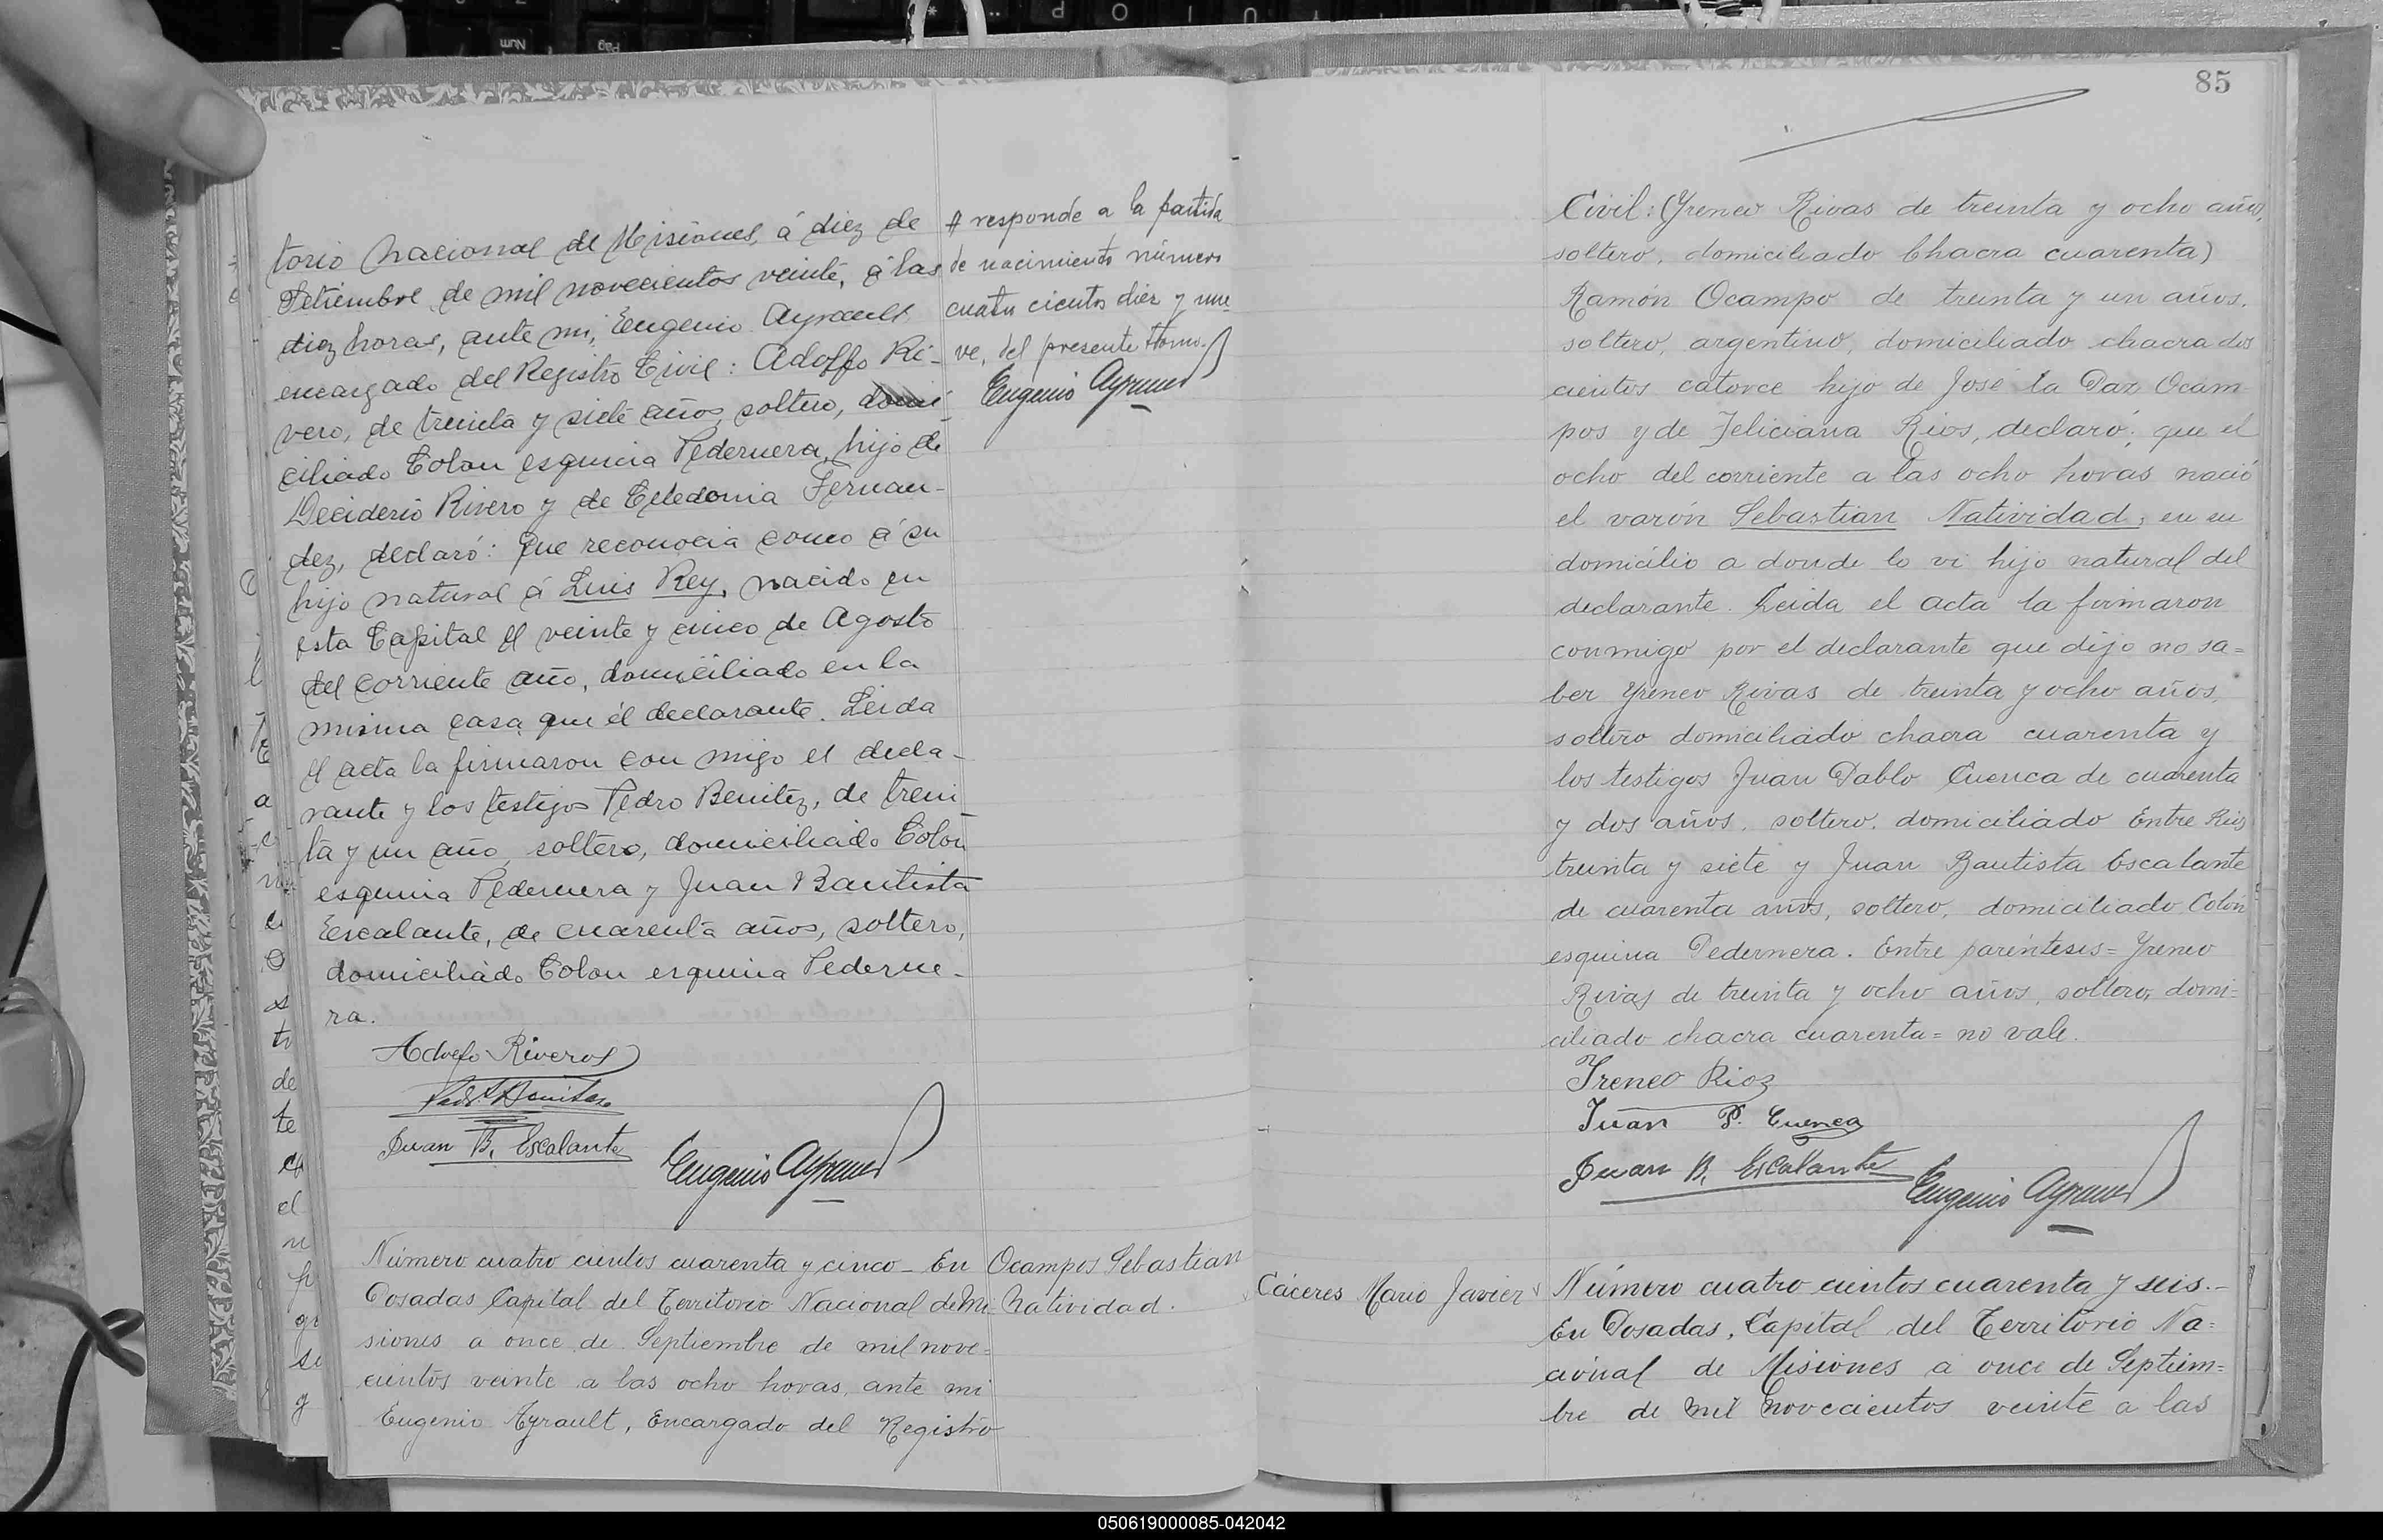 torio Nacional de Misiones, á diez de
Setiembre de mil novecientos veinte, á las
diez horas, ante mi, Eugenio Ayrault
encargado del Registro Civil: Adolfo Ri-
vero, de treinta y siete años, soltero, domi-
ciliado Colon esquina Pedernera, hijo de
Deciderio Rivero y de Celedonia Fernan-
dez, declaró: que reconocia como á su
hijo natural á Luis Rey, nacido en
esta Capital el veinte y cinco de Agosto
del corriente año, domiciliado en la
misma casa que él declarante. Leida
el acta la firmaron con migo el decla-
rante y los testigos Pedro Benitez, de trein
ta y un año, soltero, domiciliado Colon
esquina Pedernera y Juan Bautista
Escalante, de cuarenta años, soltero,
domiciliado Colon esquina Pederne-
ra.
Adolfo Riveros
Juan B. Escalante
Eugenio Ayrault
# responde a la partida
de nacimiento número
cuatro cientos diez y nue
ve, del presente tomo.
Eugenio Ayrault
Número cuatro cientos cuarenta y cinco - En
Posadas Capital del Territorio Nacional de Mi
siones a once de Septiembre de mil nove=
cientos veinte a las ocho horas, ante mi
Eugenio Ayrault, Encargado del Registro
Ocampos Sebastian
Natividad.
85
Civil: (Yreneo Rivas de treinta y ocho años,
soltero, domiciliado Chacra cuarenta)
Ramón Ocampo de treinta y un años,
soltero, argentino, domiciliado chacra dos
cientos catorce hijo de José la Paz Ocam
pos y de Feliciana Rios, declaró; que el
ocho del corriente a las ocho horas nació
el varón Sebastian Natividad; en su
domicilio a donde lo vi hijo natural del
declarante. Leida el acta la firmaron
conmigo por el declarante que dijo no sa=
ber Yreneo Rivas de treinta y ocho años,
soltero domiciliado chacra cuarenta y
los testigos Juan Pablo Cuenca de cuarenta
y dos años, soltero, domiciliado Entre Rios
treinta y siete y Juan Bautista Escalante
de cuarenta años, soltero, domiciliado Colón
esquina Pedernera. Entre paréntesis= Yreneo
Rivas de treinta y ocho años, soltero, domi=
ciliado chacra cuarenta= no vale.
Ireneo Rioz
Juan P. Cuenca
Juan B. Escalante
Eugenio Ayrault
Cáceres Mario Javier
Número cuatro cientos cuarenta y seis.-
En Posadas, Capital del Territorio Na=
cional de Misiones a once de Septiem=
bre de mil novecientos veinte a las
050619000085-042042